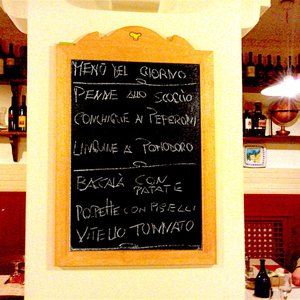 MENÙ DEL GIORNO
PENNE ALLO SCOGLIO
CONCHIGLIE AI PEPERONI
LINGUINE AL POMODORO
BACALÀ CON
PATATE
POLPETTE CON PISELLI
VITELLO TONNATO